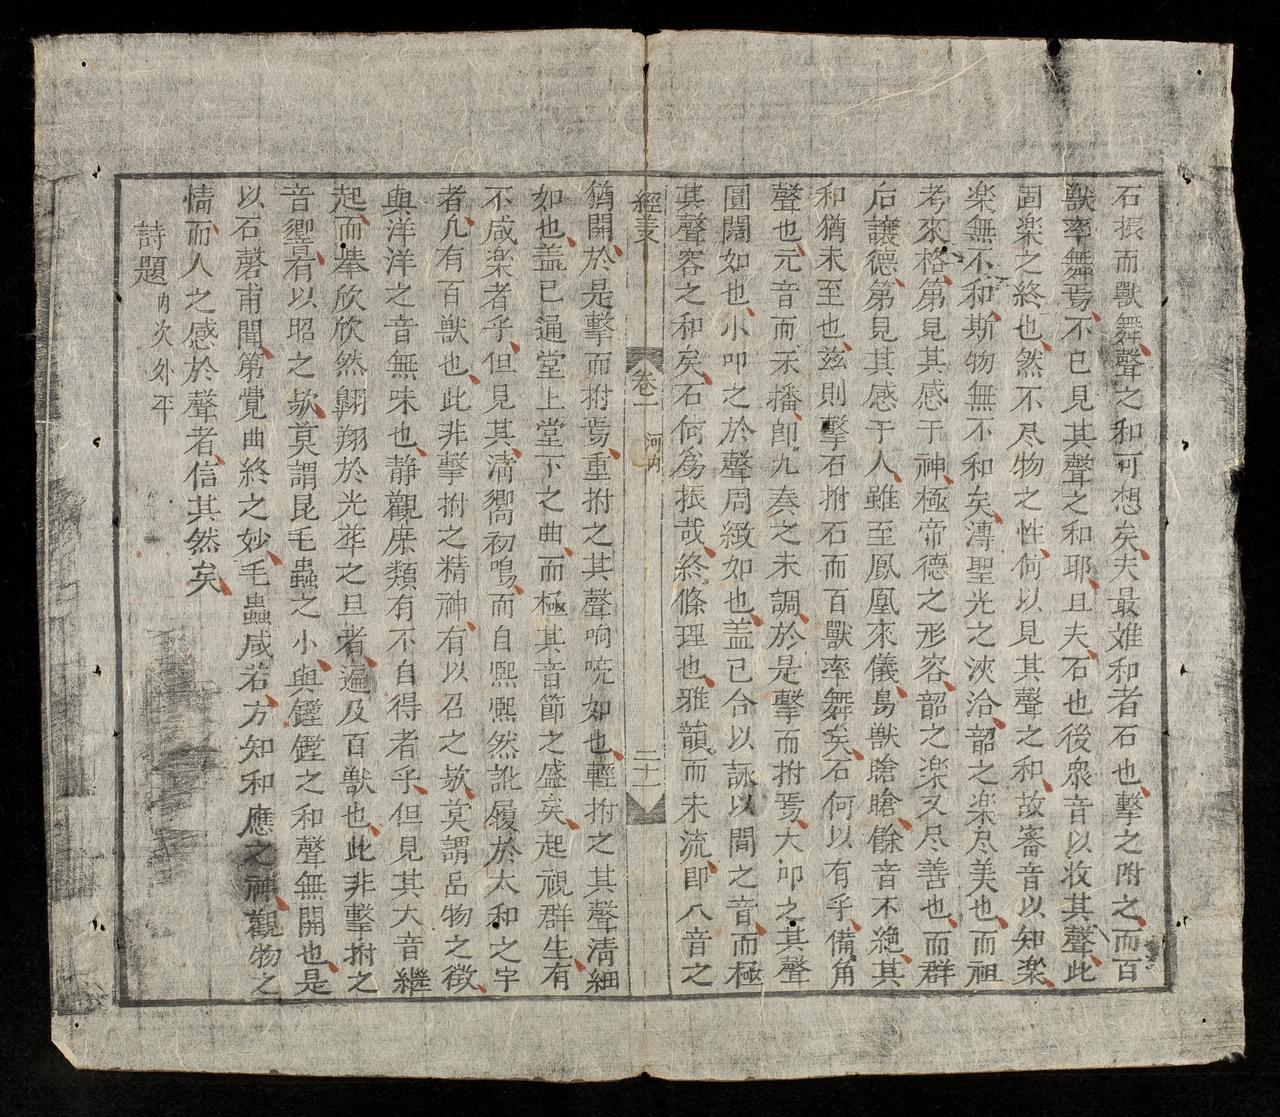 石振而獸舞聲之和可想矣夫最难和者石也擊之附之而百
獸率舞焉不已見其聲之和耶且夫石也後衆音以收其聲此
固楽之終也然不尽物之性何以見其聲之和故審音以知楽
楽無不和斯物無不和矣溥聖光之浹洽韶之楽尽美也而祖
考來格第見其感于神極帝德之形容韶之楽又尽善也而群
后讓德第見其感于人雖至鳳凰來儀鳥獸蹌蹌餘音不絶其
和猶未至也兹則擊石拊石而百獸率舞矣石何以有乎備角
聲也元音而未播即九奏之未調於是擊而拊焉大叩之其聲
圓闊如也小叩之於聲周緻如也盖已合以詠以間之音而極
其聲容之和矣石何爲振哉終條理也雅韻而未流即八音之
經義 卷一 河内 二十一
猶開於是擊而拊焉重拊之其聲响喨如也輕拊之其聲清細
如也盖已通堂上堂下之曲而極其音節之盛矣起視群生有
不咸楽者乎但見其清嚮初鳴而自熙熙然訛履於太和之宇
者凢有百獸也此非擊拊之精神有以召之歟莫謂品物之徴
與洋洋之音無味也静觀庶類有不自得者乎但見其大音繼
起而羣欣欣然翺翔於光華之旦者遍及百獸也此非擊拊之
音嚮有以昭之歟莫謂昆毛蟲之小與鏗鏗之和聲無開也是
以石磬甫聞第覺曲終之妙毛蟲咸若方知和應之神觀物之
情而人之感於聲者信其然矣
詩題 内次外平